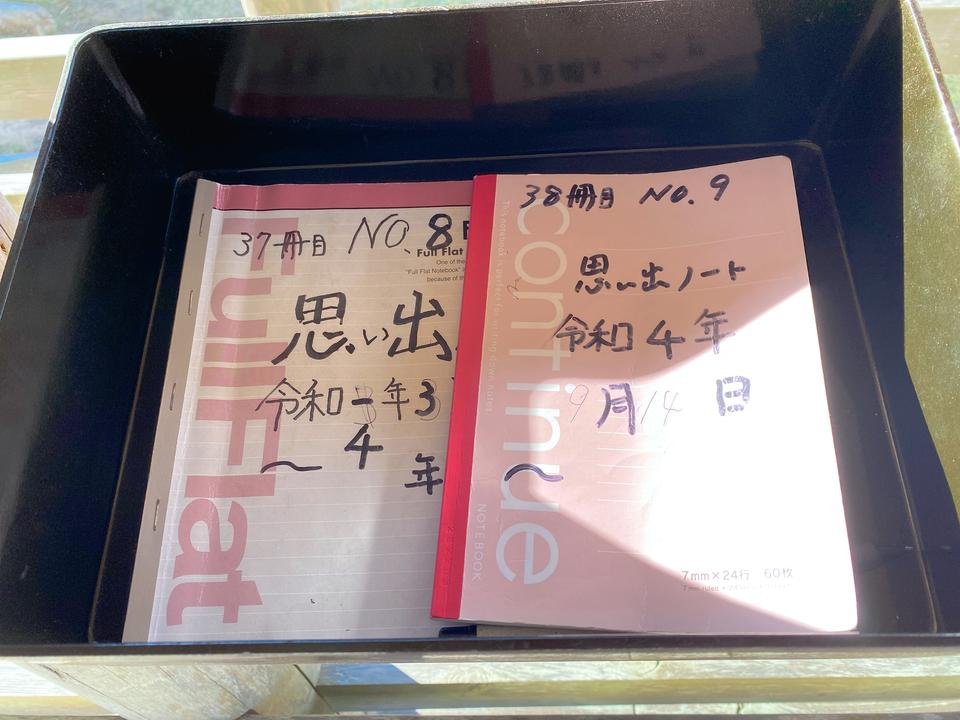 37冊目 NO.8
Full Flat
Full Flat
One of the
"Full Flat Notebook"
because of th
思い出
令和 年3
〜 4
年
38冊目 NO.9
思い出ノート
令和4年
9月14日
〜
continue
This notebook is perfect for writing down notes.
NOTE BOOK
7mm×24行 60枚